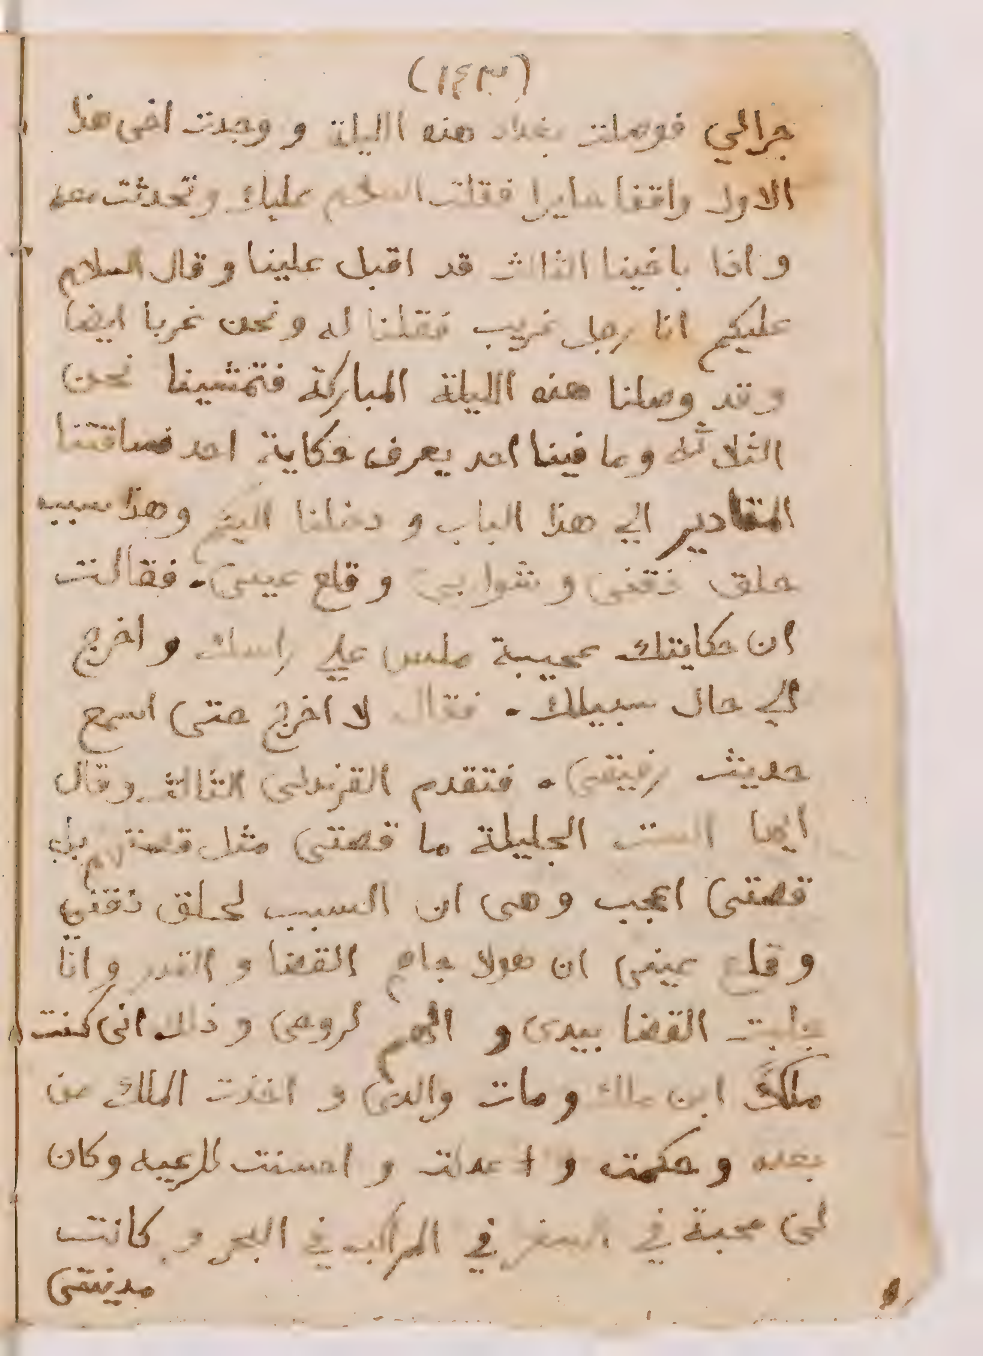 (١٤٣)
جرالي فوصلت بغداد هذه الليلة و وجدت اخي هذا
الاول واقفا حايرا فقلت السلام عليك وتحدثت معه
و اذا باخينا الثالث قد اقبل علينا و قال السلام
عليكم انا رجل غريب فقلنا له و نحن غربا ايضا
و قد وصلنا هذه الليلة المباركة فتمشينا نحن
الثلاثه وما فينا احد يعرف حكاية احد فساقتنا
المقادير الي هذا الباب و دخلنا اليكم وهذا سبب
حلق ذقني و شواربي و قلع عيني. فقالت
ان حكايتك عجيبة ملس علي راسك و اخرج
الي حال سبيلك. فقال لا اخرج حتى اسمع
حديث رفيقي. فتقدم القرندلي الثالث وقال
ايها الست الجليلة ما قصتي مثل قصتهم بل
قصتي اعجب و هى ان السبب لحلق ذقني
و قلع عيني ان هولا جاهم القضا و القدر و انا
جلبت القضا بيدى و الهم لروحى و ذلك انى كنت
ملكًا ابن ملك و مات والدى و اخذت الملك من
بعده و حكمت و عدلت و احسنت للرعيه وكان
لى محبة في السفر في المراكب في البحر و كانت
مدينتى